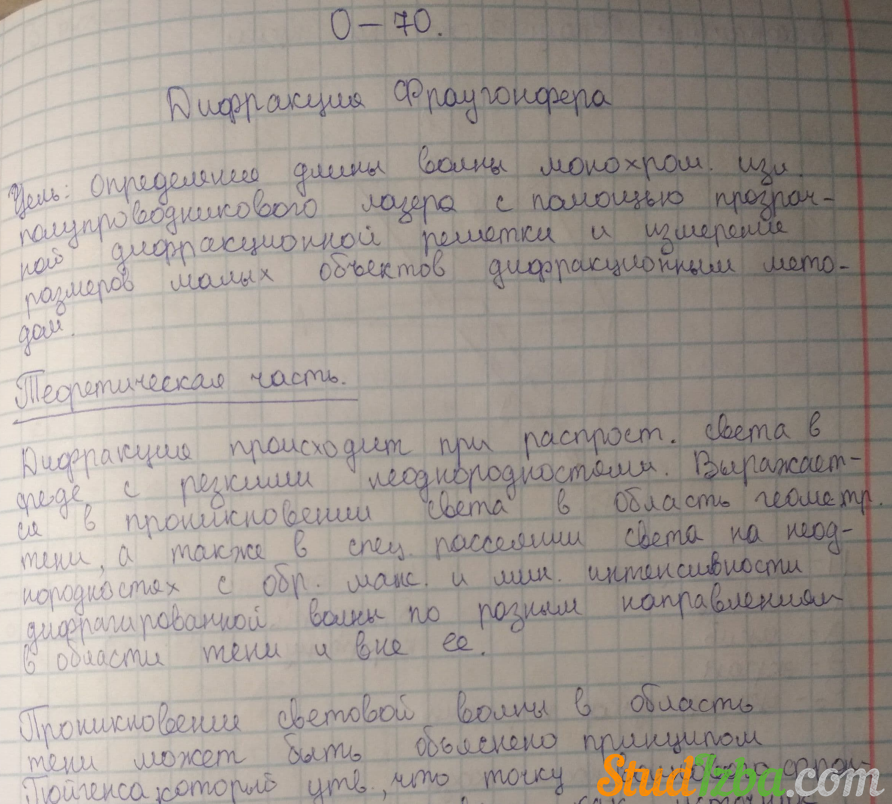 О – 70.
Дифракция Фраунгофера
Цель: определение длины волны монохром. изл.
полупроводникового лазера с помощью прозрач-
ной дифракционной решетки и измерение
размеров малых объектов дифракционным мето-
дом.
Теоретическая часть.
Дифракция происходит при распрост. света в
среде с резкими неоднородностями. Выражает-
ся в проникновении света в область геометр.
тени, а также в спец. рассеянии света на неод-
нородностях с обр. макс. и мин. интенсивности
дифрагированной волны по разным направлениям
в области тени и вне ее.
Проникновение световой волны в область
тени может быть объяснено принципом
Гюйгенса, который утв., что точку
StudIzba.com